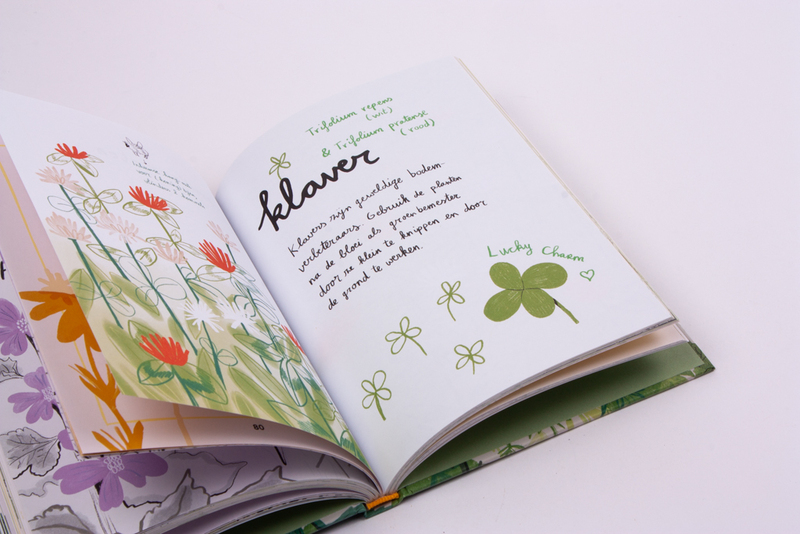 80
Trifolium repens
(wit)
& Trifolium pratense
(rood)
klaver
Klavers zijn geweldige bodem-
verbeteraars. Gebruik de planten
na de bloei als groenbemester
door ze klein te knippen en door
de grond te werken.
Lucky Charm